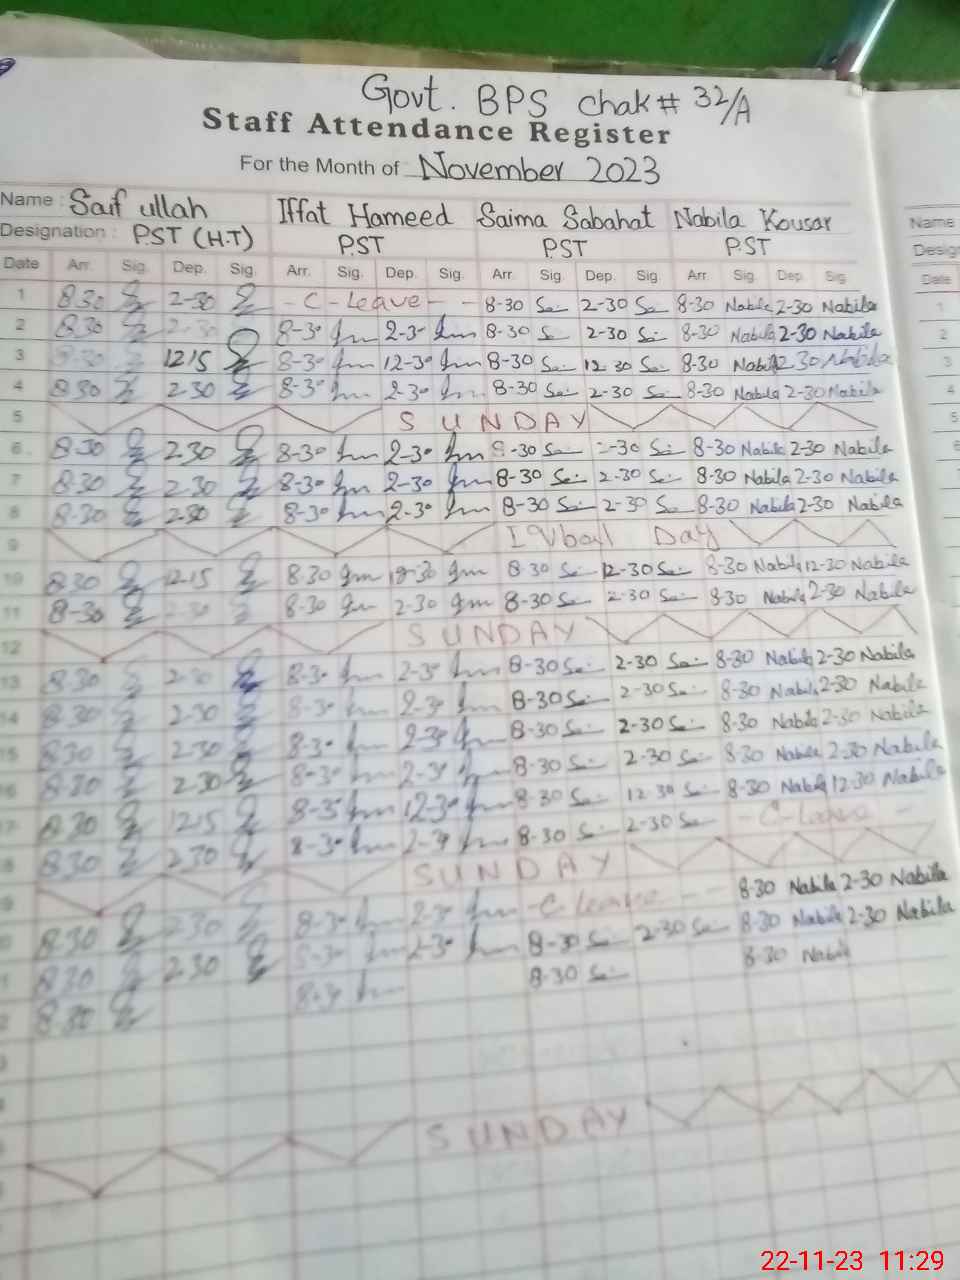 Govt. BPS Chak # 32/A
Staff Attendance Register
For the Month of November 2023
Name : Saif ullah Iffat Hameed Saima Sabahat Nabila Kousar Name
Designation : P.S.T (H.T) P.S.T P.S.T P.S.T Design
Date Arr. Sig. Dep. Sig. Arr. Sig. Dep. Sig. Arr. Sig. Dep. Sig. Arr. Sig. Dep. Sig Date
1 8 30 2-30 - C - Leave - - 8-30 Sai 2-30 Sai 8-30 Nabila 2-30 Nabila 1
2 8 30 2-30 8-30 2-30 8-30 Sai 2-30 Sai 8-30 Nabila 2-30 Nabila 2
3 8-30 1215 8-30 12-30 8-30 Sai 12 30 Sai 8-30 Nabila 2 30 Nabila 3
4 8 30 2-30 8-30 2-30 8-30 Sai 2-30 Sai 8-30 Nabila 2-30 Nabila 4
5 SUNDAY 5
6 8-30 2-30 8-30 2-30 8-30 Sai 2-30 Sai 8-30 Nabila 2-30 Nabila 6
7 8-30 2-30 8-30 2-30 8-30 Sai 2-30 Sai 8-30 Nabila 2-30 Nabila
8 8-30 2-30 8-30 2-30 8-30 Sai 2-30 Sai 8-30 Nabila 2-30 Nabila
9 Day
10 8 30 1215 8.30 12-30 8-30 Sai 12-30 Sai 8-30 Nabila 12-30 Nabila
11 8-30 2-30 8-30 2-30 8-30 Sai 2-30 Sai 8-30 Nabila 2-30 Nabila
12 SUNDAY
13 8-30 2-30 8-30 2-30 8-30 Sai 2-30 Sai 8-30 Nabila 2-30 Nabila
14 8-30 2-30 8-30 2-30 8-30 Sai 2-30 Sai 8-30 Nabila 2-30 Nabila
15 8 30 2-30 8-30 2-30 8-30 Sai 2-30 Sai 8-30 Nabila 2-30 Nabila
16 8 30 2-30 8-30 2-30 8-30 Sai 2-30 Sai 8-30 Nabila 2-30 Nabila
17 8 30 1215 12-30 8-30 Sai 12-30 Sai 8-30 Nabila 12-30 Nabila
8 30 2 30 8-30 2-30 8-30 Sai 2-30 Sai - C - Leave -
SUNDAY
8-30 2-30 8-30 2-30 - C - Leave - - 8-30 Nabila 2-30 Nabila
8-30 2-30 8-30 2-30 8-30 Sai 2-30 Sai 8-30 Nabila 2-30 Nabila
8-30 8-30 8-30 Sai 8-30 Nabila
SUNDAY
22-11-23 11:29